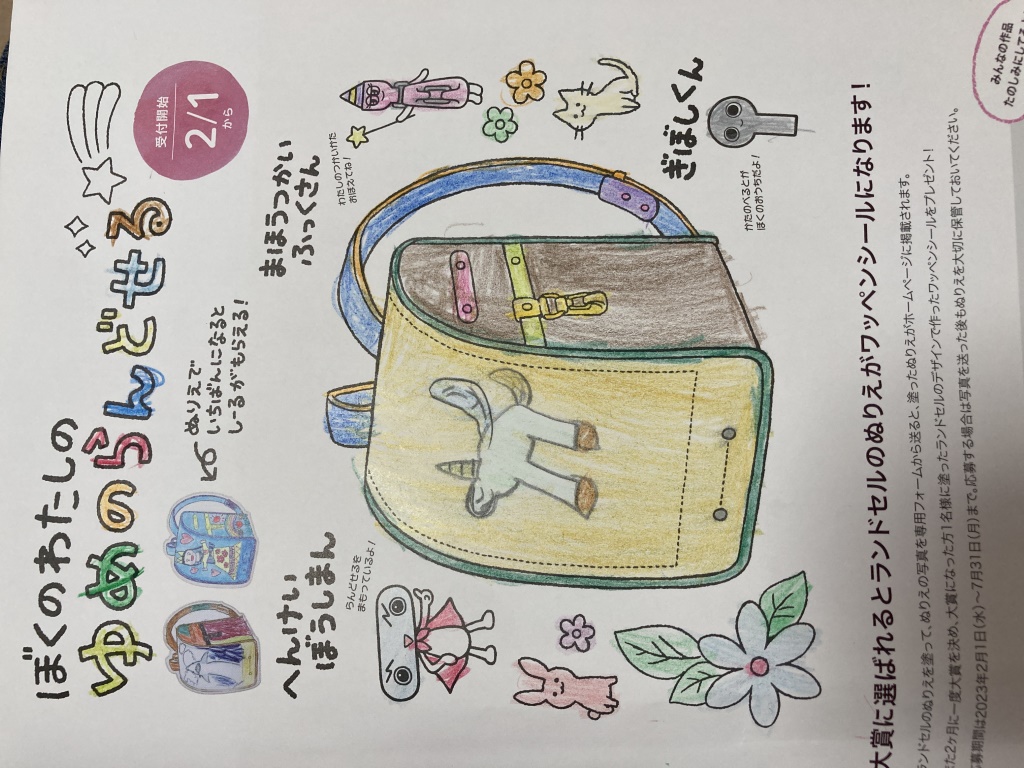 ぼくのわたしの
ゆめのらんどせる
受付開始
2/1
から
ぬりえで
いちばんになると
しーるがもらえる!
へんけい
ぼうしまん
らんどせるを
まもっているよ!
まほうつかい
ふっくさん
わたしのつかいかた
おぼえてね!
ぎぼしくん
かたのべるとが
ぼくのおうちだよ!
大賞に選ばれるとランドセルのぬりえがワッペンシールになります!
ンドセルのぬりえを塗って、ぬりえの写真を専用フォームから送ると、塗ったぬりえがホームページに掲載されます。
た2ヶ月に一度大賞を決め、大賞になった方1名様に塗ったランドセルのデザインで作ったワッペンシールをプレゼント!
応募期間は2023年2月1日(水)〜7月31日(月)まで。応募する場合は写真を送った後もぬりえを大切に保管しておいてください。
みんなの作品
たのしみにしてる